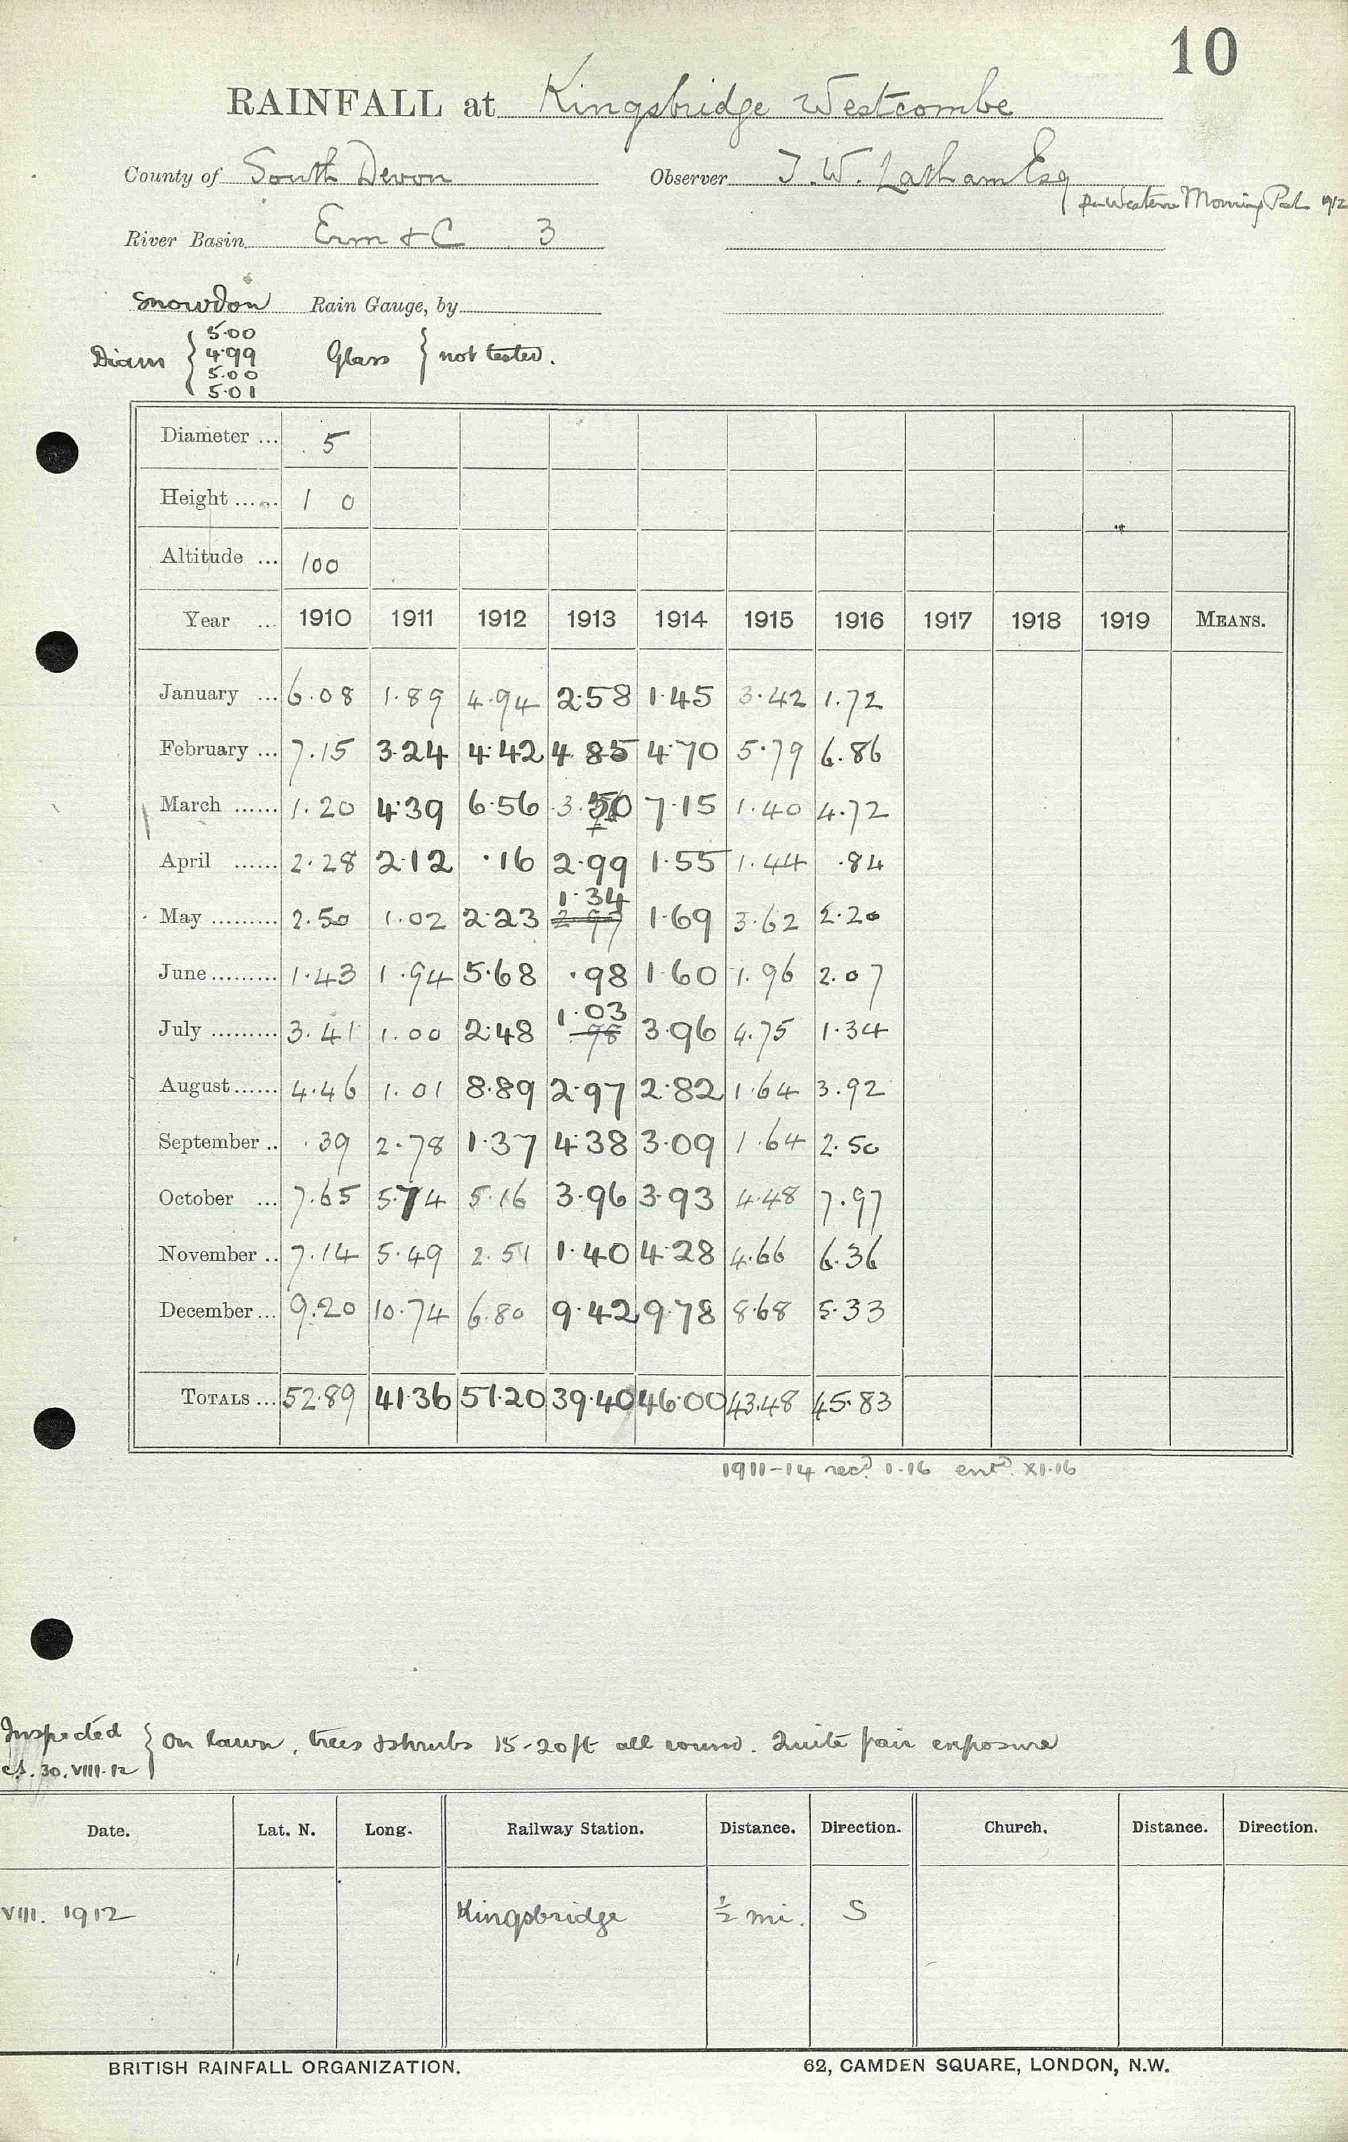 10
RAINFALL at Kingsbridge Westcombe
County of South Devon Observer T. W. Latham Esq
per Western Morning 1912
River Basin Erm & C 3
Snowdon Rain Gauge, by
Diam { 5.00 4.99 5.00 5.01 Glass } not tested.
Diameter ... 5
Height ...... 1 0
Altitude ... 100
Year ... 1910 1911 1912 1913 1914 1915 1916 1917 1918 1919 MEANS.
January ... 6.08 1.89 4.94 2.58 1.45 3.42 1.72
February ... 7.15 3.24 4.42 4.85 4.70 5.79 6.86
March ...... 1.20 4.39 6.56 3.50 7.15 1.40 4.72
April ...... 2.28 2.12 .16 2.99 1.55 1.44 .84
1.34
May ......... 2.50 1.02 2.23 2.97 1.69 3.62 2.20
June ......... 1.43 1.94 5.68 .98 1.60 1.96 2.07
1.03
July ......... 3.41 1.00 2.48 .98 3.96 4.75 1.34
August ...... 4.46 1.01 8.89 2.97 2.82 1.64 3.92
September .. .39 2.78 1.37 4.38 3.09 1.64 2.50
October ... 7.65 5.74 5.16 3.96 3.93 4.48 7.97
November .. 7.14 5.49 2.51 1.40 4.28 4.66 6.36
December ... 9.20 10.74 6.80 9.42 9.78 8.68 5.33
TOTALS ... 52.89 41.36 51.20 39.40 46.00 43.48 45.83
1911-14 recd. 1.16 entd. XI.16
Inspected } On lawn, trees & shrubs 15-20ft all round. Quite fair exposure
30.VIII.12
Date. Lat. N. Long. Railway Station. Distance. Direction. Church. Distance. Direction.
VIII. 1912 Kingsbridge ½ mi. S
BRITISH RAINFALL ORGANIZATION. 62, CAMDEN SQUARE, LONDON, N.W.